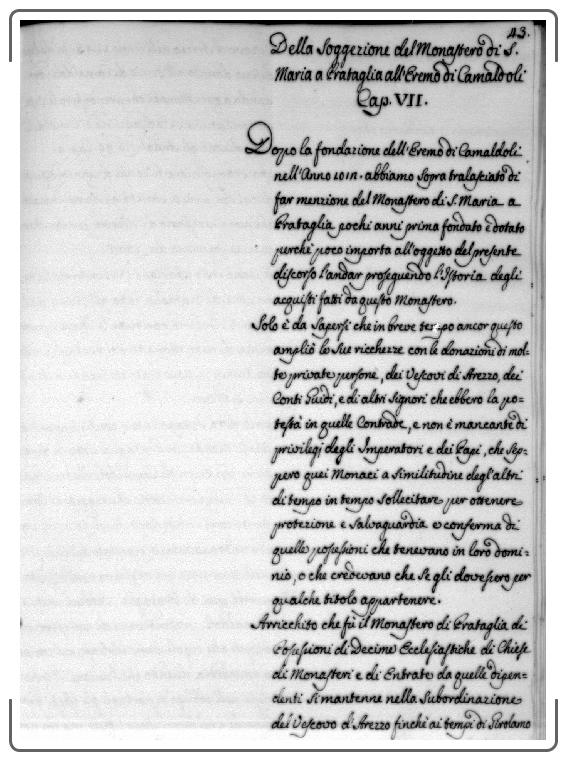 43.
Della Soggezione del Monastero di S.
Maria a Prataglia all'Eremo di Camaldoli
Cap. VII.
Dopo la fondazione dell'Eremo di Camaldoli
nell'Anno abbiamo Sopra tralasciato di
far menzione del Monastero di S. Maria a
Prataglia pochi anni prima fondato e dotato
perchè poco importa all'oggetto del presente
discorso l'andar proseguendo l'Istoria degli
acquisti fatti da questo Monastero.
Solo è da Sapersi che in breve tempo ancor questo
ampliò le Sue ricchezze con le donazioni di mol-
te private persone, dei Vescovi di Arezzo, dei
Conti Guidi, e di altri Signori che ebbero la po-
testà in quelle Contrade, e non è mancante di
privilegi degli Imperatori e dei Papi, che Sep-
pero quei Monaci a Similitudine degl'altri
di tempo in tempo Sollecitare per ottenere
protezione e Salvaguardia e conferma di
quelle possessioni che tenevano in loro domi-
nio, o che credevano che Se gli dovessero per
qualche titolo appartenere.
Arricchito che fù il Monastero di Prataglia di
Possessioni di Decime Ecclesiastiche di Chiese
di Monasteri e di Entrate da quelle dipen-
denti Si mantenne nella Subordinazione
del Vescovo d'Arezzo finchè ai tempi di Girolamo